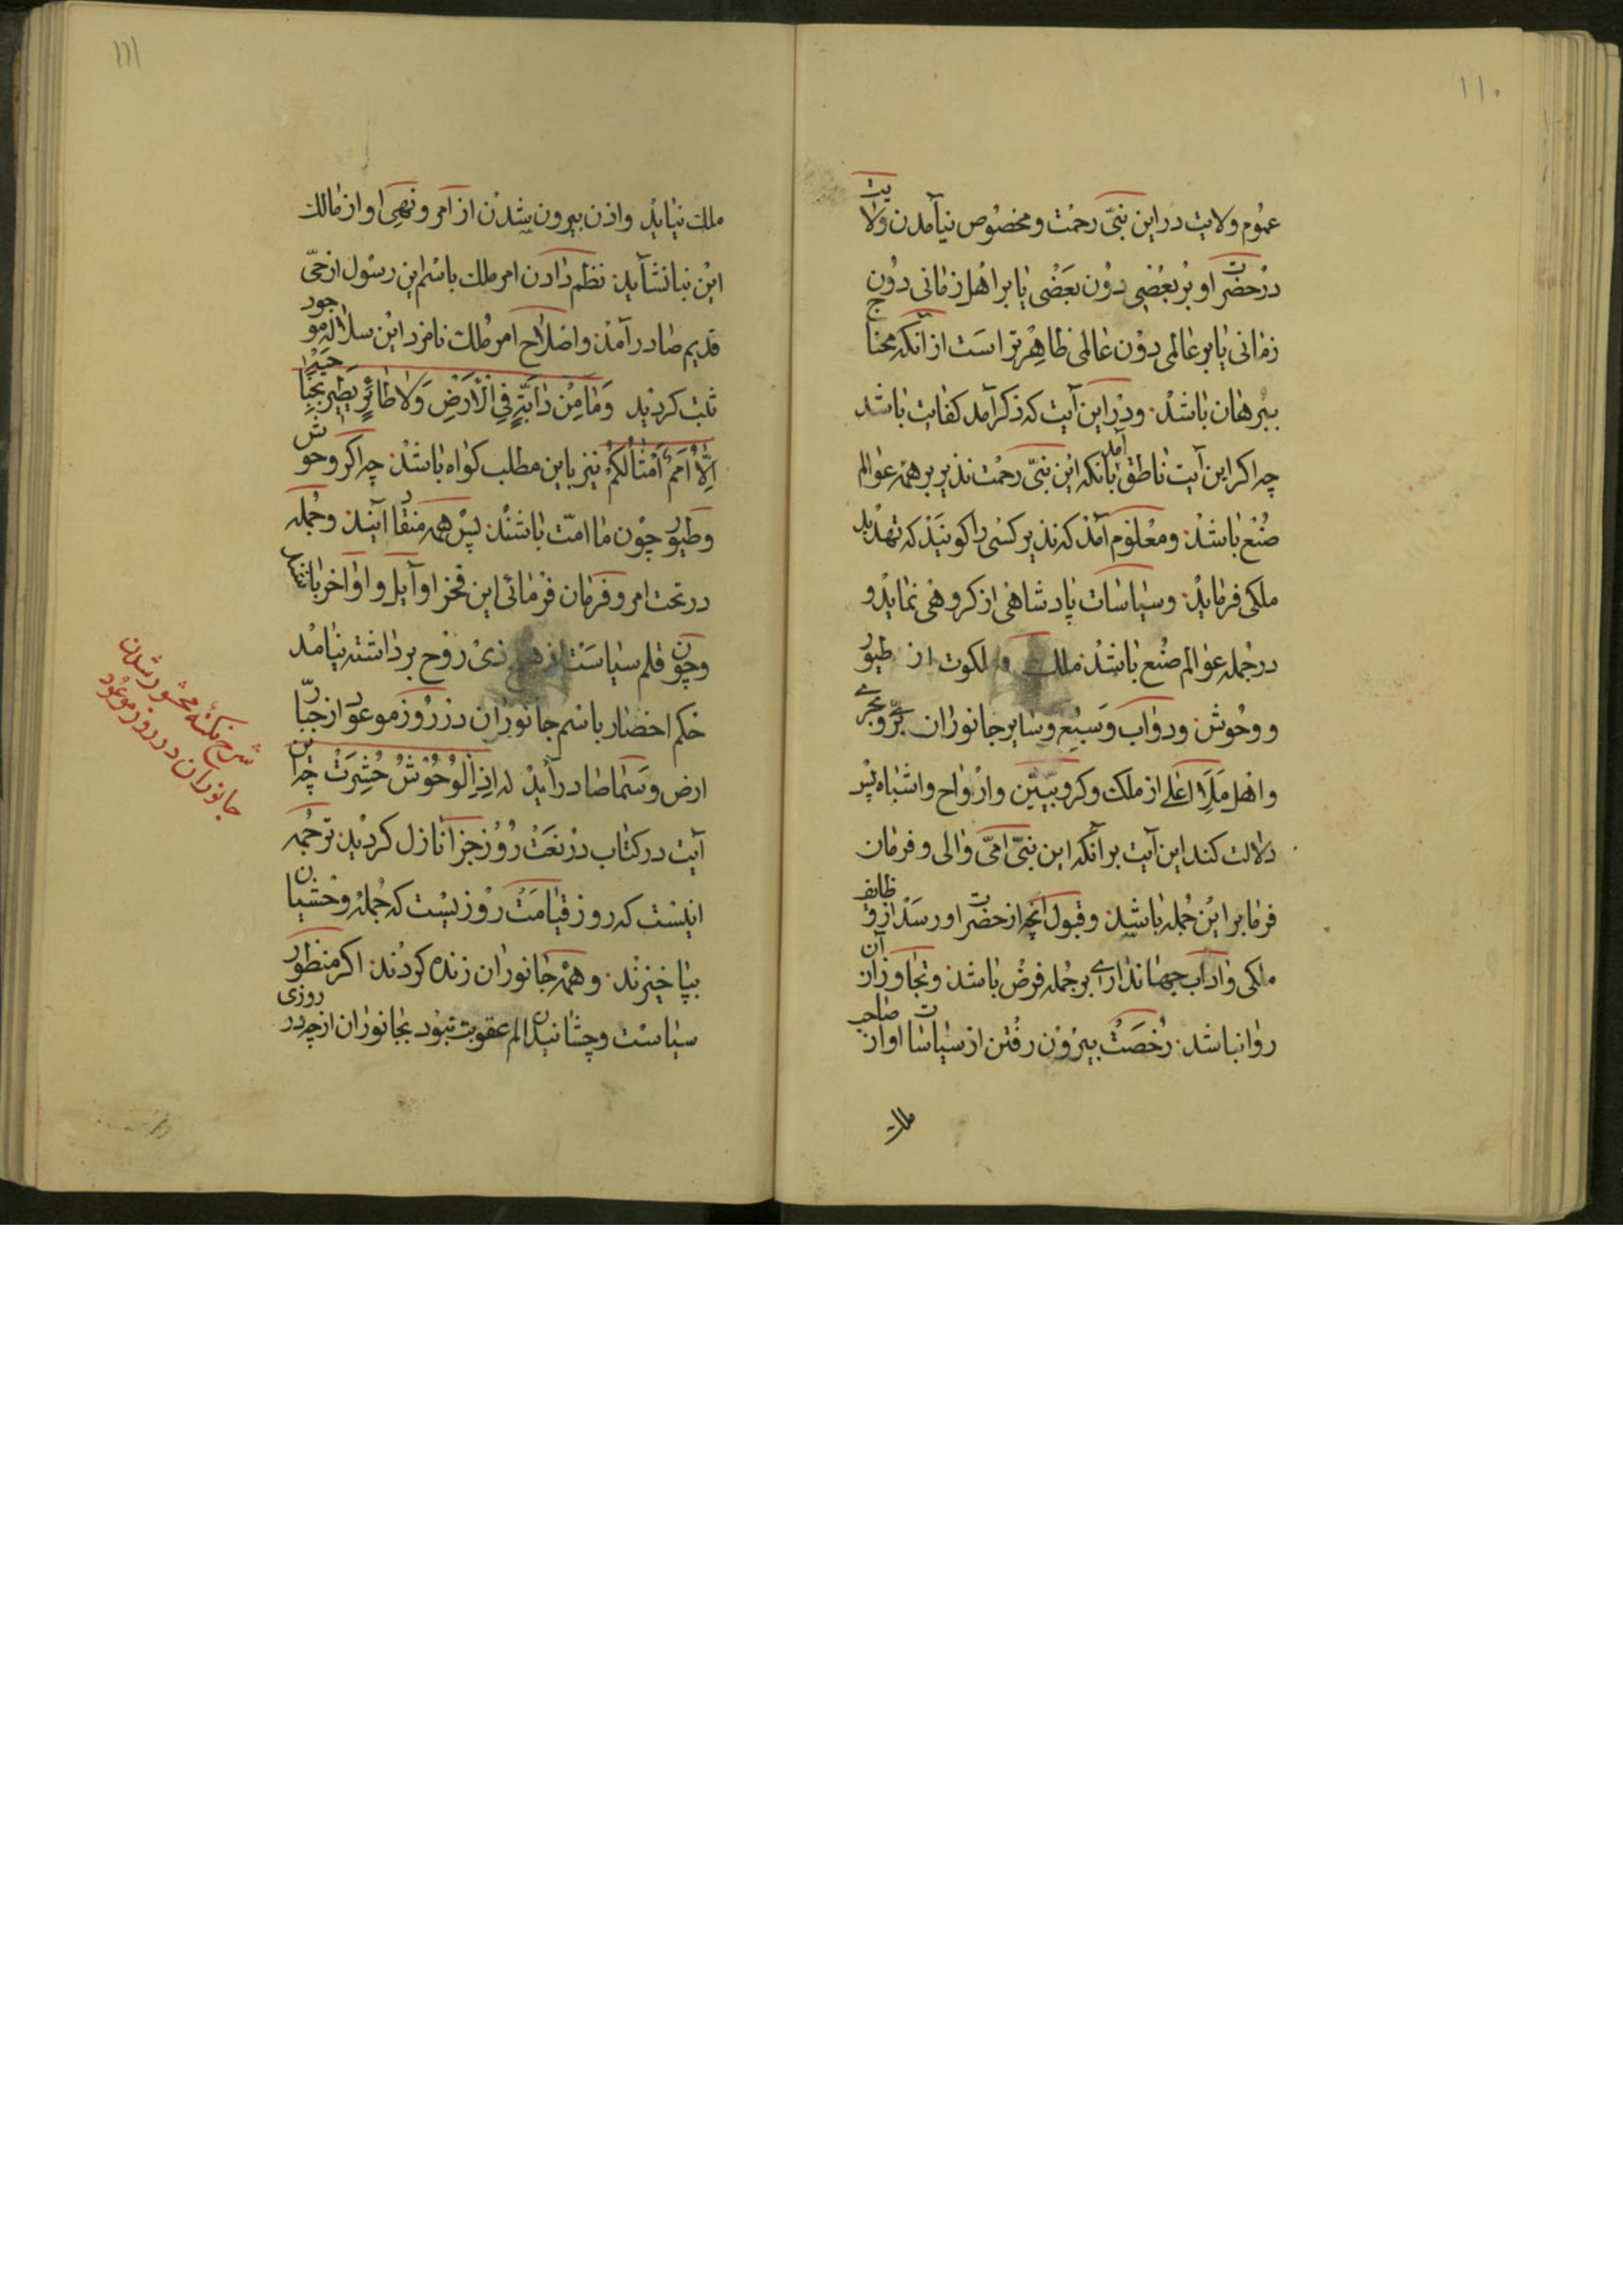 ۱۱۰
عموم ولایت در این نبیّ رحمت و مخصوص نیآمدن ولایت
در حضرت او بر بعضی دون بعضی یا بر اهل زمانی دون
زمانی یا بر عالمی دون عالمی ظاهرتر است از آنکه محتاج
ببرهان باشد و در این آیت که ذکر آمد کفایت باشد
چه اکر این آیت ناطق آمد بانکه این نبیّ رحمت نذیر بر همه عوالم
صنع باشد و معلوم آمد که نذیر کسی را کویند که تهدید
ملکی فرماید و سیاسات پادشاهی از کروهی نماید و
در جمله عوالم صنع باشد ملک و ملکوت از طیور
و وحوش و دواب و سبیع و سایر جانوران برّی و بحری
و اهل ملأ اعلی از ملک و کروبیّین و ارواح و اشباه پس
دلالت کند این آیت بر آنکه این نبیّ امّی والی و فرمان
فرما بر این جمله باشد و قبول آنچه از حضرت او رسد از وظایف
ملکی و اداب جهانداری بر جمله فرض باشد و تجاوز از آن
روا نباشد رخصت بیرون رفتن از سیاسات او از صاحب
ملک
۱۱۱
ملک نیاید و اذن بیرون شدن از امر و نهی او از مالک
این بنا نشاید نظم دادن امر ملک باسم این رسول از حیّ
قدیم صادر آمد و اصلاح امر ملک نامزد این سلاله موجود
ثبت کردید وَمَا مِنْ دَابَّةٍ فِي الْأَرْضِ وَلَا طَائِرٍ يَطِيرُ بِجَنَاحَيْهِ
إِلَّا أُمَمٌ أَمْثَالُكُمْ نیز باین مطلب کواه باشد چه اکر وحوش
و طیور چون ما امّت باشند پس همه منقاد آیند و جمله
در تحت امر و فرمان فرمائی این فخر اوایل و اواخر باشند
و چون قلم سیاست از هیچ ذی روح برداشته نیامد
حکم احضار باسم جانوران در روز موعود از جبّار
ارض و سما صادر آید که اذا الْوُحُوشُ حُشِرَتْ چه این
آیت در کتاب در نعت روز جزا نازل کردید ترجمه
اینست که روز قیامت روزیست که جمله وحشیان
بپا خیزند و همه جانوران زنده کردند اکر منظور
سیاست و چشانیدن الم عقوبت نبود بجانوران از چه در روزی
شرح نکته محشور شدن
جانوران در روز موعود